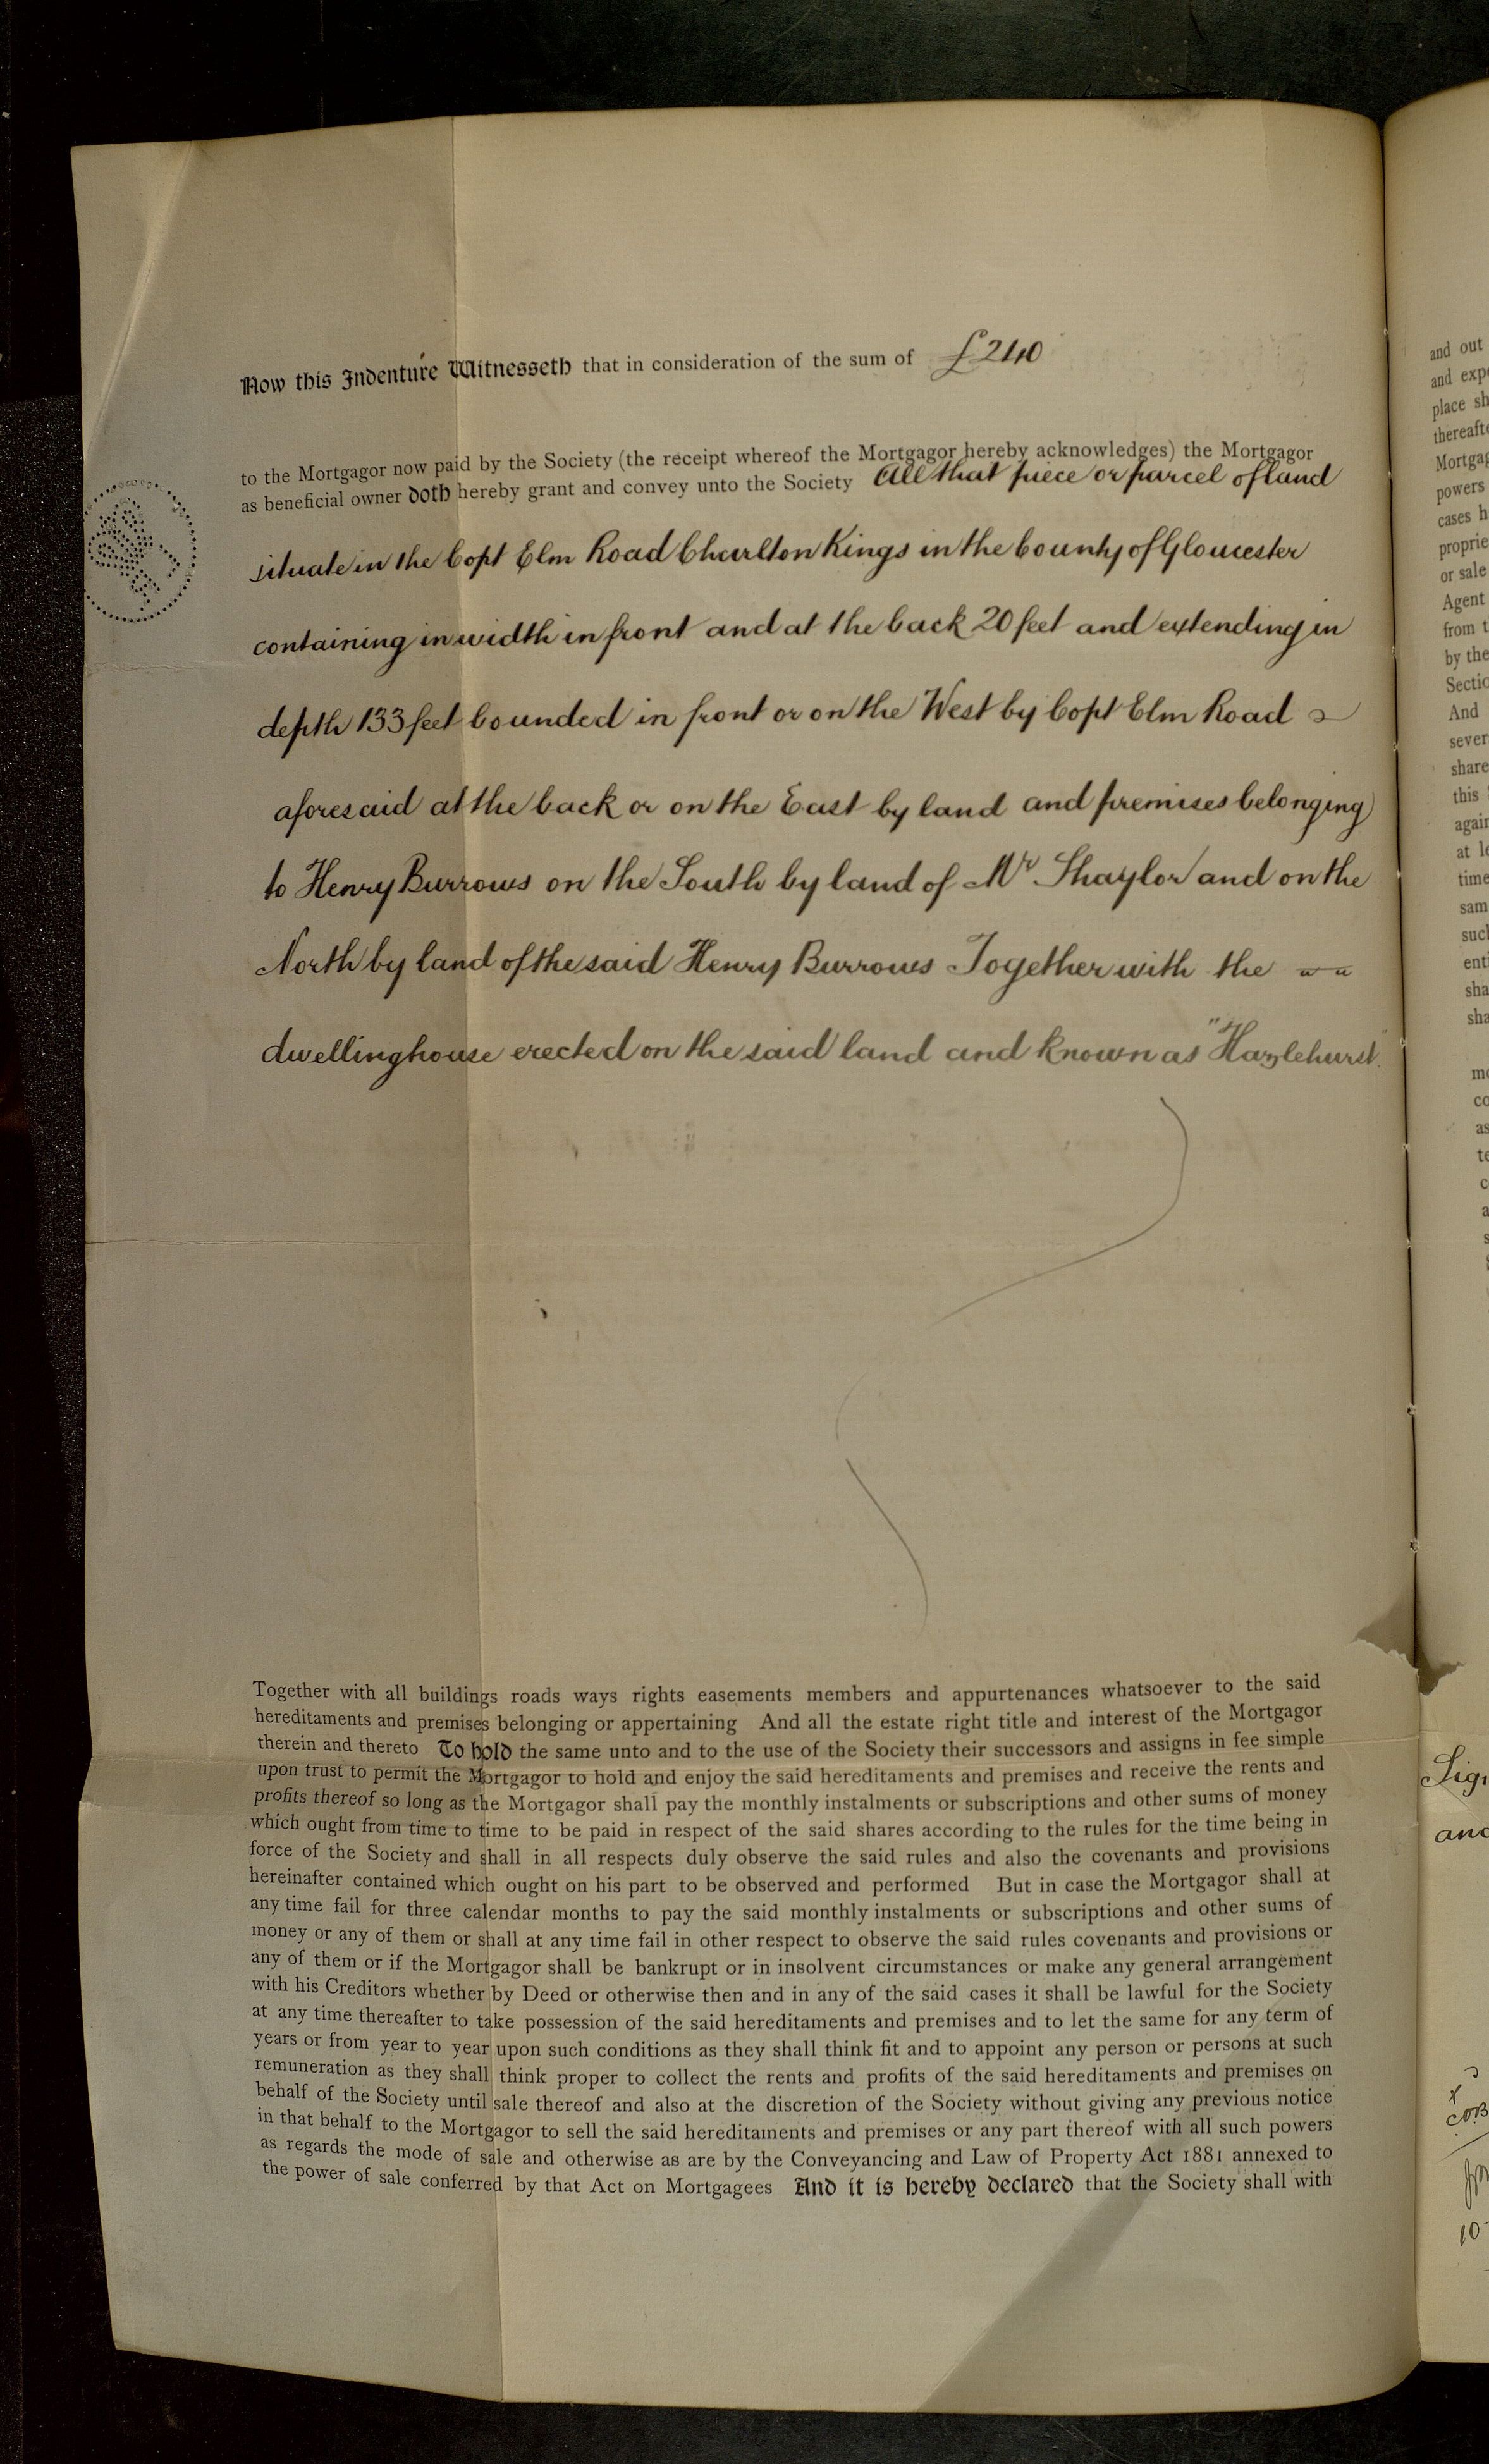 Now this Indenture Witnesseth that in consideration of the sum of £240
to the Mortgagor now paid by the Society (the receipt whereof the Mortgagor hereby acknowledges) the Mortgagor
as beneficial owner doth hereby grant and convey unto the Society All that piece or parcel of land
situate in the Copt Elm Road Charlton Kings in the County of Gloucester
containing in width in front and at the back 20 feet and extending in
depth 133 feet bounded in front or on the West by Copt Elm Road
aforesaid at the back or on the East by land and premises belonging
to Henry Burrows on the South by land of Mr Shaylor and on the
North by land of the said Henry Burrows Together with the
dwellinghouse erected on the said land and known as "Hazlehurst"
Together with all buildings roads ways rights easements members and appurtenances whatsoever to the said
hereditaments and premises belonging or appertaining And all the estate right title and interest of the Mortgagor
therein and thereto To hold the same unto and to the use of the Society their successors and assigns in fee simple
upon trust to permit the Mortgagor to hold and enjoy the said hereditaments and premises and receive the rents and
profits thereof so long as the Mortgagor shall pay the monthly instalments or subscriptions and other sums of money
which ought from time to time to be paid in respect of the said shares according to the rules for the time being in
force of the Society and shall in all respects duly observe the said rules and also the covenants and provisions
hereinafter contained which ought on his part to be observed and performed But in case the Mortgagor shall at
any time fail for three calendar months to pay the said monthly instalments or subscriptions and other sums of
money or any of them or shall at any time fail in other respect to observe the said rules covenants and provisions or
any of them or if the Mortgagor shall be bankrupt or in insolvent circumstances or make any general arrangement
with his Creditors whether by Deed or otherwise then and in any of the said cases it shall be lawful for the Society
at any time thereafter to take possession of the said hereditaments and premises and to let the same for any term of
years or from year to year upon such conditions as they shall think fit and to appoint any person or persons at such
remuneration as they shall think proper to collect the rents and profits of the said hereditaments and premises on
behalf of the Society until sale thereof and also at the discretion of the Society without giving any previous notice
in that behalf to the Mortgagor to sell the said hereditaments and premises or any part thereof with all such powers
as regards the mode of sale and otherwise as are by the Conveyancing and Law of Property Act 1881 annexed to
the power of sale conferred by that Act on Mortgagees And it is hereby declared that the Society shall with
and out
and
place
powers
cases
or sale
Agent
from
by the
And
share
this
at
time